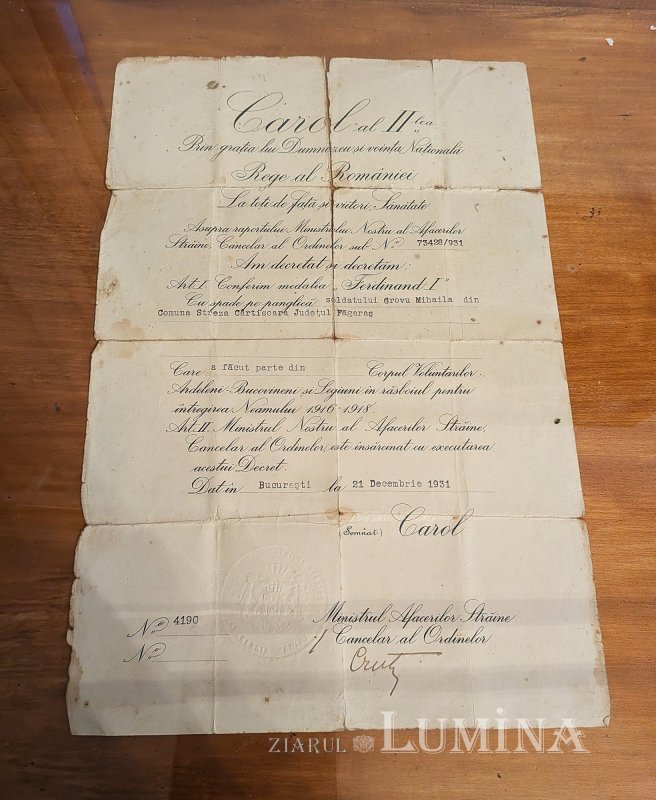 Carol al II lea
Prin grația lui Dumnezeu și voința Națională
Rege al României
La toți de față și viitori, Sănătate
Asupra raportului Ministrului Nostru al Afacerilor
Străine, Cancelar al Ordinelor sub No. 73428/931
Am decretat și decretăm:
Art. I. Conferim medalia „Ferdinand I"
Cu spade pe panglică soldatului Grovu Mihaila din
Comuna Streza Cârtisoară Județul Făgaraș
Care a făcut parte din Corpul Voluntarilor
Ardeleni-Bucovineni și Legiuni în răsboiul pentru
întregirea Neamului 1916-1918.
Art. II. Ministrul Nostru al Afacerilor Străine,
Cancelar al Ordinelor, este însărcinat cu executarea
acestui Decret.
Dat în București la 21 Decembrie 1931
(Semnat) Carol
Ministrul Afacerilor Străine
No. 4190
/ Cancelar al Ordinelor
No.
ZIARUL LUMINA